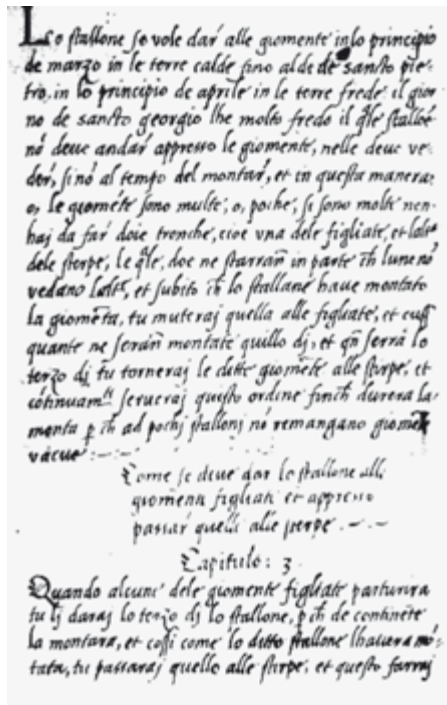 Lo stallone se vole dar̃ alle giomente in lo principio
de marzo in le terre calde fino al de de sancto pie-
tro, in lo principio de aprile in le terre frede il gior
no de sancto georgio lhe molto fredo il q̃le stalloẽ
nõ deue andar̃ appresso le giomente, nelle deue ve-
der̃, si nõ al tempo del montar̃, et in questa manera,
o, le giomẽte sono multe, o, poche, si sono molte nen-
haj da far̃ doie tronche, cioe vna dele figliate, et
dele sterpe, le q̃le, doe ne starrañ in parte ch̃ lune nõ
vedano et subito ch̃ lo stallone haue montato
la giomẽta, tu muteraj quella alle figliate, et cusi
quante ne serañ montate quillo dj, et qñ serrà lo
terzo dj tu torneraj le ditte giomẽte alle stirpe, et
cõtinuam.ti serueraj questo ordine finch̃ durera la
monta p ch̃ ad pochj stallonj nõ remangano giomẽte
vacue :-.-
Come se deue dar lo stallone alli
giomenti figliati et appresso
passar quelli alle sterpe .-.-
Capitulo : 3
Quando alcune dele giomente figliate parturira
tu lj daraj lo terzo dj lo stallone, p ch̃ de continẽte
la montara, et cossi come lo ditto stallone lhauera mõ-
tata, tu passaraj quello alle stirpe, et questo farraj